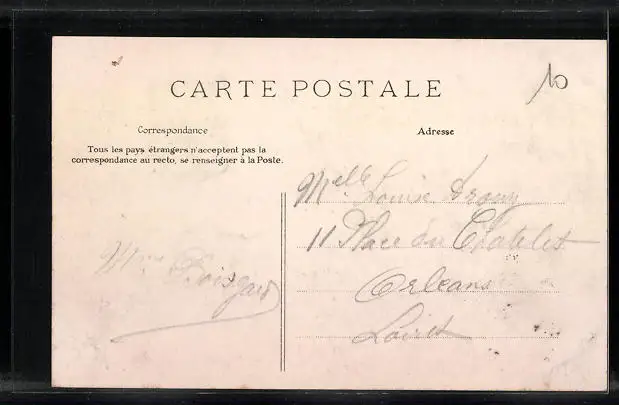 CARTE POSTALE
10
Correspondance
Adresse
Tous les pays étrangers n'acceptent pas la
correspondance au recto, se renseigner à la Poste.
Melle Louise
11 Place du Chatelet
Orleans
Loiret
Mme Boisgard